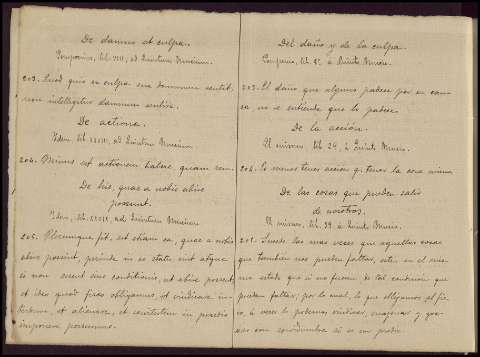 De damno et culpa.
Pomponius, lib. VIII, ad Quintum Mucium.
203. Quod quis ex culpa sua damnum sentit,
non intelligitur damnum sentire.
De actione.
Idem, lib. XXXIV, ad Quintum Mucium.
204. Minus est actionem habere, quam rem.
De his, quae a nobis abire
possunt.
Idem, lib. XXXIX, ad Quintum Mucium.
205. Plerumque fit, ut etiam ea, quae a nobis
abire possint, proinde in eo statu sint atque
si non essent eius conditionis, ut abire possent
et ideo quod fisco obligamus, et vindicare in-
terdum, et alienare, et servitutem in praedio
imponere possumus.
Del daño y de la culpa.
Pomponio, lib. 8º, à Quinto Mucio.
203. El daño que alguno padece por su cau-
sa, no se entiende que lo padece.
De la acción.
El mismo, lib. 24, à Quinto Mucio.
204. Es menos tener acción q. tener la cosa misma.
De las cosas que pueden salir
de nosotros.
El mismo, lib. 39, à Quinto Mucio.
205. Sucede las mas veces que aquellas cosas
que tambien nos pueden faltar, esten en el mis-
mo estado que si no fueran de tal condición que
puedan faltar; por lo cual, lo que obligamos al fis-
co, á veces lo podemos vindicar, enagenar y gra-
var con servidumbre si es un predio.